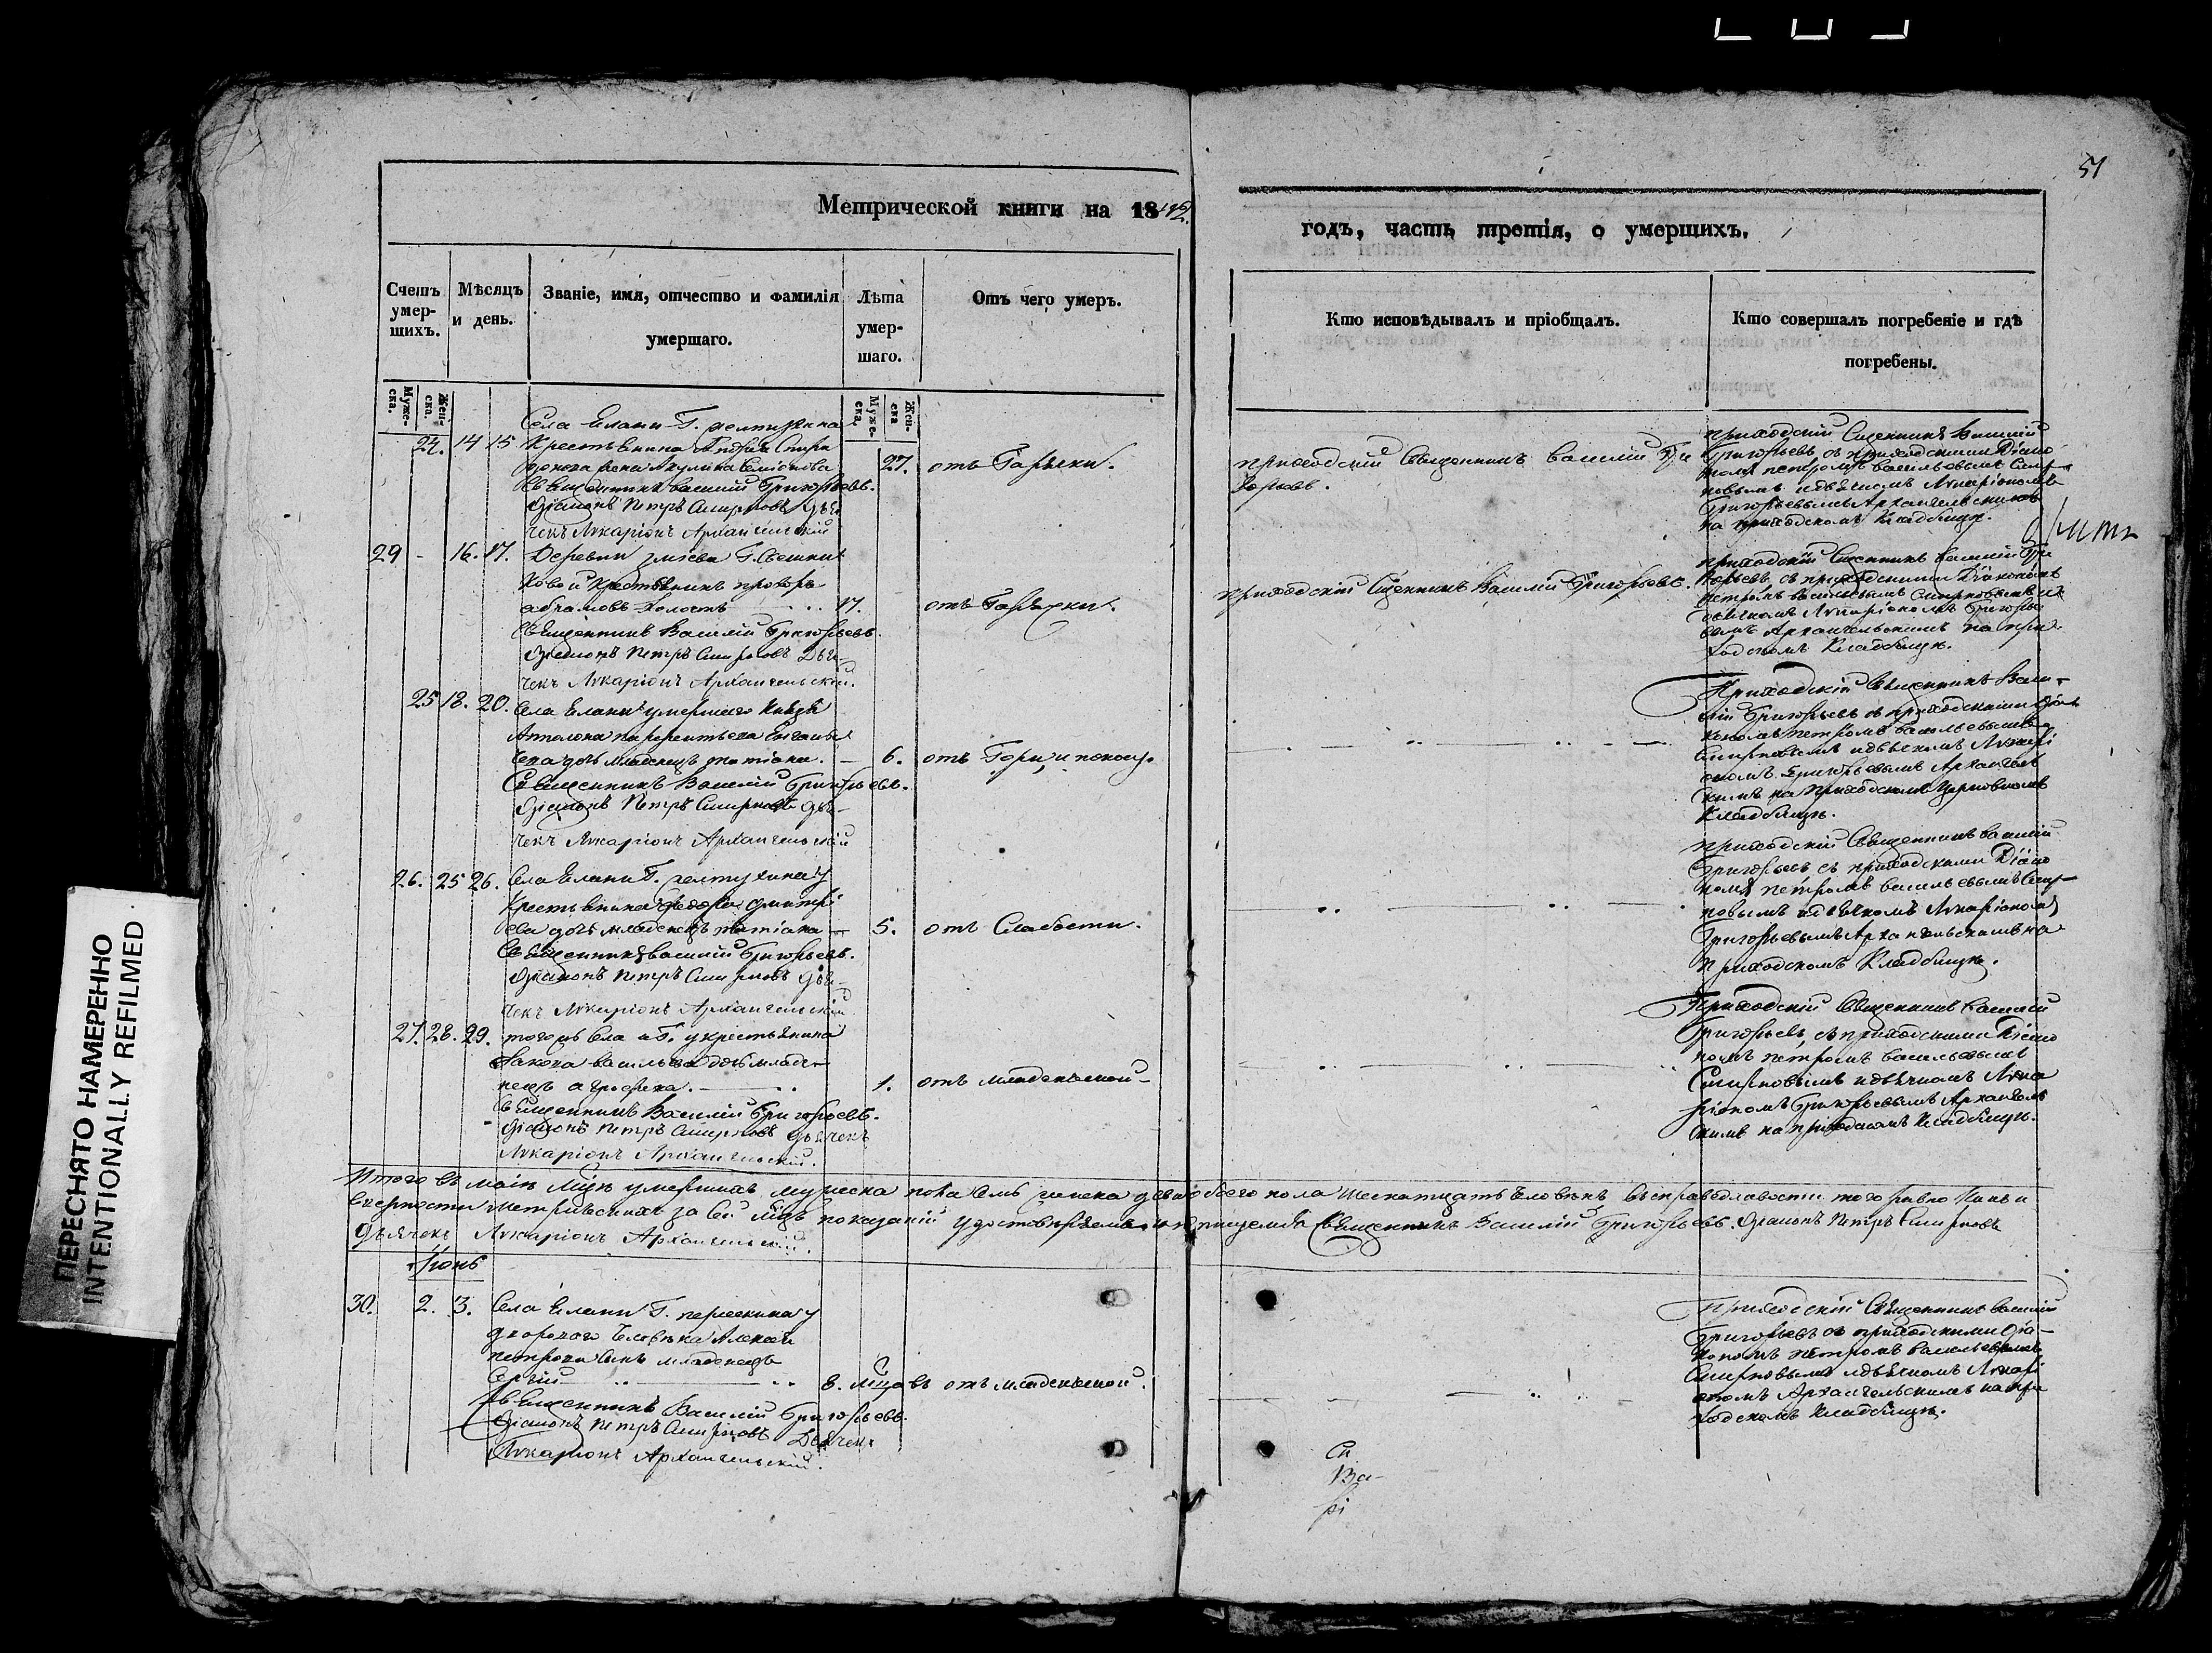 51
Метрической книги на 1842.
годъ, часть третія, о умершихъ.
Счетъ умер-шихъ.
Мѣсяцъ и день.
Званіе, имя, отчество и фамилія умершаго.
Лѣта умер-шаго.
Отъ чего умеръ.
Кто исповѣдывалъ и пріобщалъ.
Кто совершалъ погребеніе и гдѣ погребены.
Муже-ска.
Жен-ска.
Муже-ска.
Жен-ска
Села Елани Г.
24. 14 15 Крестьянина Андрея
жена Акулина
27. отъ Горячки.
Священникъ Василий Григорьевъ.
Діаконъ Петръ Смирновъ Дья
чекъ Иларіонъ Архангельскій
приходскій Священникъ Василій Гри
горьевъ.
приходскій Сщенникъ Василій
Григорьевъ съ приходскими Діако
номъ Петромъ Васильевымъ Смир
новымъ и дьячкомъ Иларіономъ
Григорьевымъ Архангельскимъ
на приходскомъ Кладбищѣ.
29 - 16. 17. Деревни Г.
Крестьянинъ
абрамовъ холостъ 17.
отъ Горячки.
Священникъ Василій Григорьевъ
Діаконъ Петръ Смирновъ Дья-
чекъ Иларіонъ Архангельскій.
приходскій Сщенникъ Василій Григорьевъ.
приходскій Сщенникъ Василій Гри
горьевъ, съ приходскими Діакономъ
Петромъ Васильевымъ Смирновымъ и
дьячкомъ Иларіономъ Григорье
вымъ Архангельскимъ на при
ходскомъ Кладбищѣ.
25 18. 20. Села Елани умершаго Князя
дочь младенецъ татіана. - 6. отъ
Священникъ Василій Григорьевъ.
Діаконъ Петръ Смирновъ дья-
чекъ Иларіонъ Архангельскій
Приходскій Священникъ Васи-
лій Григорьевъ съ приходскими Діа
кономъ Петромъ Васильевымъ
Смирновымъ и дьячкомъ Илари
ономъ Григорьевымъ Архангель
скимъ на Приходскомъ Церковномъ
Кладбищѣ.
26. 25 26. Села Елани Г. у
Крестьянина Федора Дмитрі
ева дочь младенецъ татіана - 5. отъ Слабости.
Священникъ Василій Григорьевъ.
Діаконъ Петръ Смирновъ дья-
чекъ Иларіонъ Архангельскій
приходскій Священникъ Василій
Григорьевъ съ приходскими Діако
номъ Петромъ Васильевымъ Смир-
новымъ и дьячкомъ Иларіономъ
Григорьевымъ Архангельскимъ на
Приходскомъ Кладбищѣ.
27. 28. 29. тогожъ Села и Г. у крестьянина
Якова Васильева дочь младе-
нецъ агрофена. 1. отъ младенческой-
Священникъ Василій Григорьевъ.
Діаконъ Петръ Смирновъ дьячекъ
Иларіонъ Архангельскій.
Приходскій Священникъ Василій
Григорьевъ, съ приходскими Діако
номъ Петромъ Васильевымъ
Смирновымъ и дьячкомъ Ила
ріономъ Григорьевымъ Архангель
скимъ на приходскомъ Кладбищѣ.
Итого въ маіѣ мцѣ умершихъ мужеска пола Семь женска девять обоего пола Шеснатцать Человѣкъ въ справедливости того равно какъ и
въ верности метрическихъ за Сей мцъ показаній удостовѣряемъ Священникъ Василій Григорьевъ. Діаконъ Петръ Смирновъ
дьячекъ Иларіонъ Архангельскій.
Іюнь
30. 2. 3. Села Елани Г. у
двороваго Человѣка Алексѣя
Петрова Сынъ младенецъ
Сергій 8. мцовъ отъ младенческой.
Священникъ Василій Григорьевъ.
Діаконъ Петръ Смирновъ Дьячекъ
Иларіонъ Архангельскій.
Приходскій Священникъ Василій
Григорьевъ съ приходскими Діа-
кономъ Петромъ Васильевымъ
Смирновымъ и дьячкомъ Илари
ономъ Архангельскимъ на при
ходскомъ Кладбищѣ.
Сп
Ва-
рі
ПЕРЕСНЯТО НАМЕРЕННО
INTENTIONALLY REFILMED